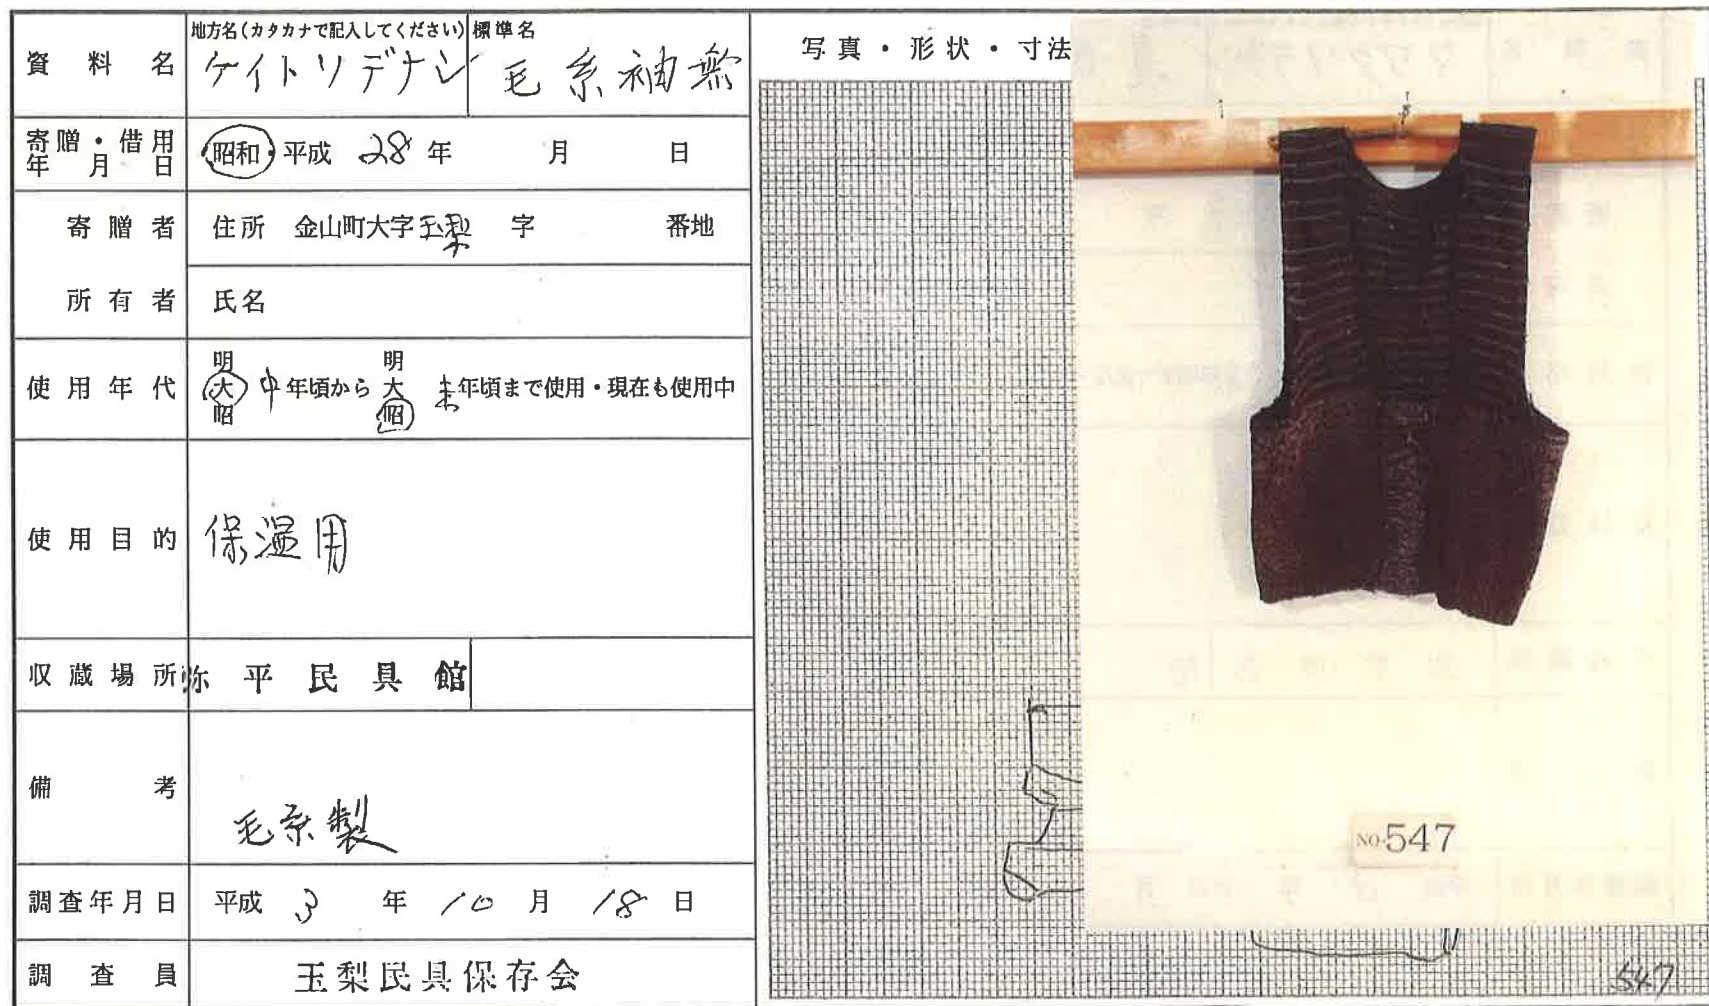 資料名
地方名(カタカナで記入してください) 標準名
ケイトソデナシ 毛糸袖無
寄贈・借用年月日
昭和・平成 28年 月 日
寄贈者
住所 金山町大字玉梨 字 番地
所有者
氏名
使用年代
明大昭 中年頃から 明大昭 末年頃まで使用・現在も使用中
使用目的
保温用
収蔵場所
弥平民具館
備考
毛糸製
調査年月日
平成 3年 10月 18日
調査員
玉梨民具保存会
写真・形状・寸法
NO.547
547